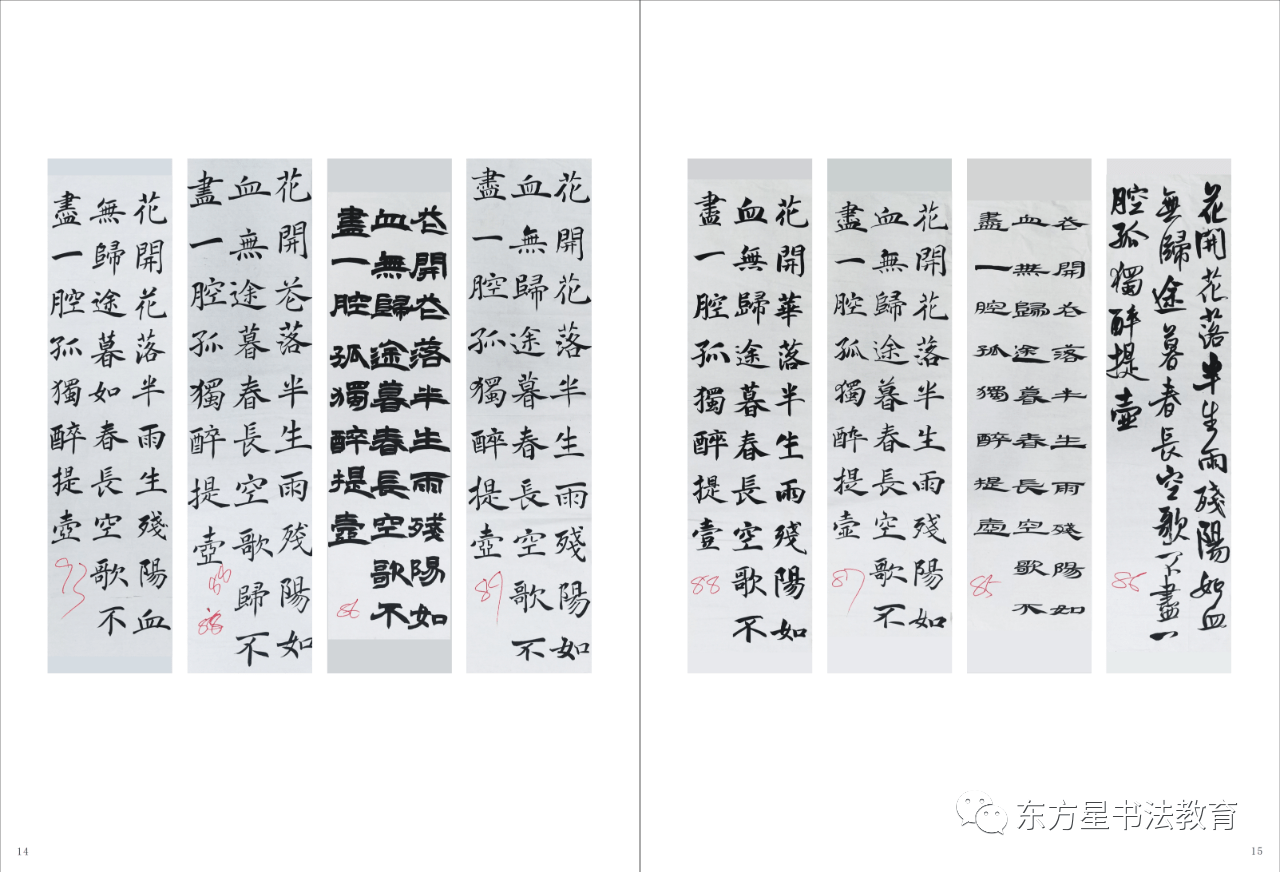 花開花落半雨生殘陽血
無歸途暮如春長空歌不
盡一腔孤獨醉提壺
93
花開花落半生雨殘陽如
血無途暮春長空歌歸不
盡一腔孤獨醉提壺
88
花開花落半生雨殘陽如
血無歸途暮春長空歌不
盡一腔孤獨醉提壺
86
花開花落半生雨殘陽如
血無歸途暮春長空歌不
盡一腔孤獨醉提壺
89
花開華落半生雨殘陽如
血無歸途暮春長空歌不
盡一腔孤獨醉提壺
88
花開花落半生雨殘陽如
血無歸途暮春長空歌不
盡一腔孤獨醉提壺
87
花開花落半生雨殘陽如
血無歸途暮春長空歌不
盡一腔孤獨醉提壺
85
花開花落半生雨殘陽如血
無歸途暮春長空歌不盡一
腔孤獨醉提壺
86
东方星书法教育
14
15